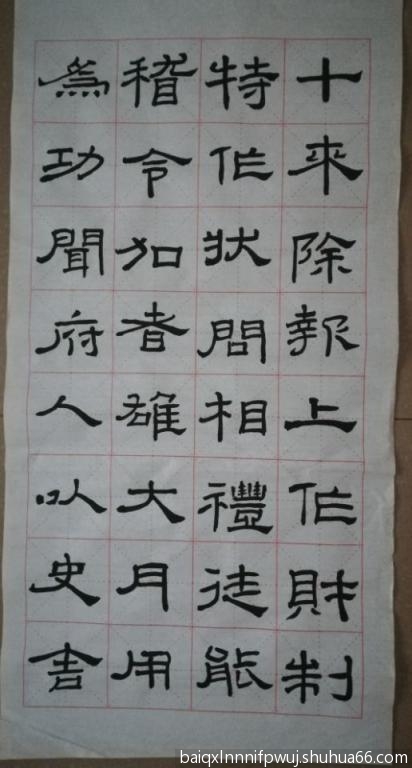 十來除報上作財制
特作狀問相禮徒能
稽令加者雄大月用
為功聞府人以史吉
baiqxlnnnifpwuj.shuhua66.com